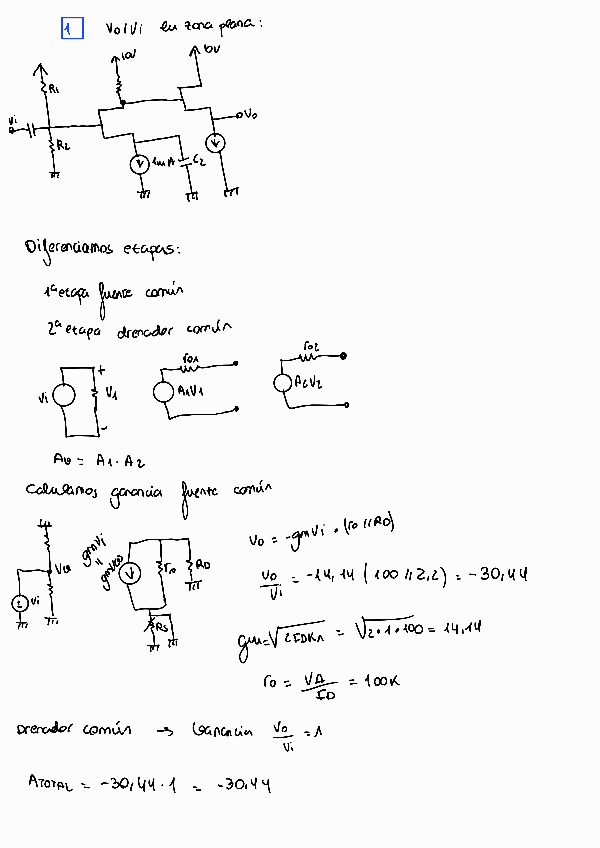 1 Vo/Vi en zona plana:
10V
10V
R1
Vi
Vo
R2
1mA
C2
Diferenciamos etapas:
1ª etapa fuente común
2ª etapa drenador común
ro1
ro2
Vi
+
V1
-
A1V1
A2V2
Av = A1 · A2
Calculamos ganancia fuente común
Vo = -gmVi · (ro // RD)
gmVi
=
ro
RD
Vi
Vo/Vi = -14,14 (100 // 2,2) = -30,44
RS
gm = √2IDKn = √2·1·100 = 14,14
ro = VA/ID = 100K
Drenador común → Ganancia Vo/Vi = 1
ATOTAL = -30,44 · 1 = -30,44